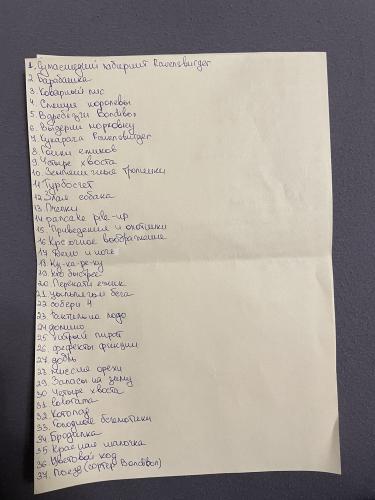 1. Сумасшедший лабиринт Ravensburger
2. Барабашка
3. Коварный лис
4. Спящие королевы
5. Вдребезги Bondibon
6. Выдерни морковку
7. Кукарача Ravensburger
8. Гонки ёжиков
9. Четыре хвоста
10. Земляничные тропинки
11. Турбосчет
12. Злая собака
13. Пчелки
14. pancake pile-up
15. Приведения и охотники
16. Крс очное воображение
17. Дело в ноге
18. Ку-ка-ре-ку
19. кто быстрее
20. Перекати ежик
21. цыплячьи бега
22. собери 4
23. Тактильное лото
24. домино
25. Хитрый пират
26. эффекты функции
27. доббль
28. Миссия орехи
29. Запасы на зиму
30. Четыре хвоста
31.
32. Котопад
33. Голодные бегемотики
34. Бродилка
35. Красная шапочка
36. Цветовой код
37. Поезд (сортер Bondibon)